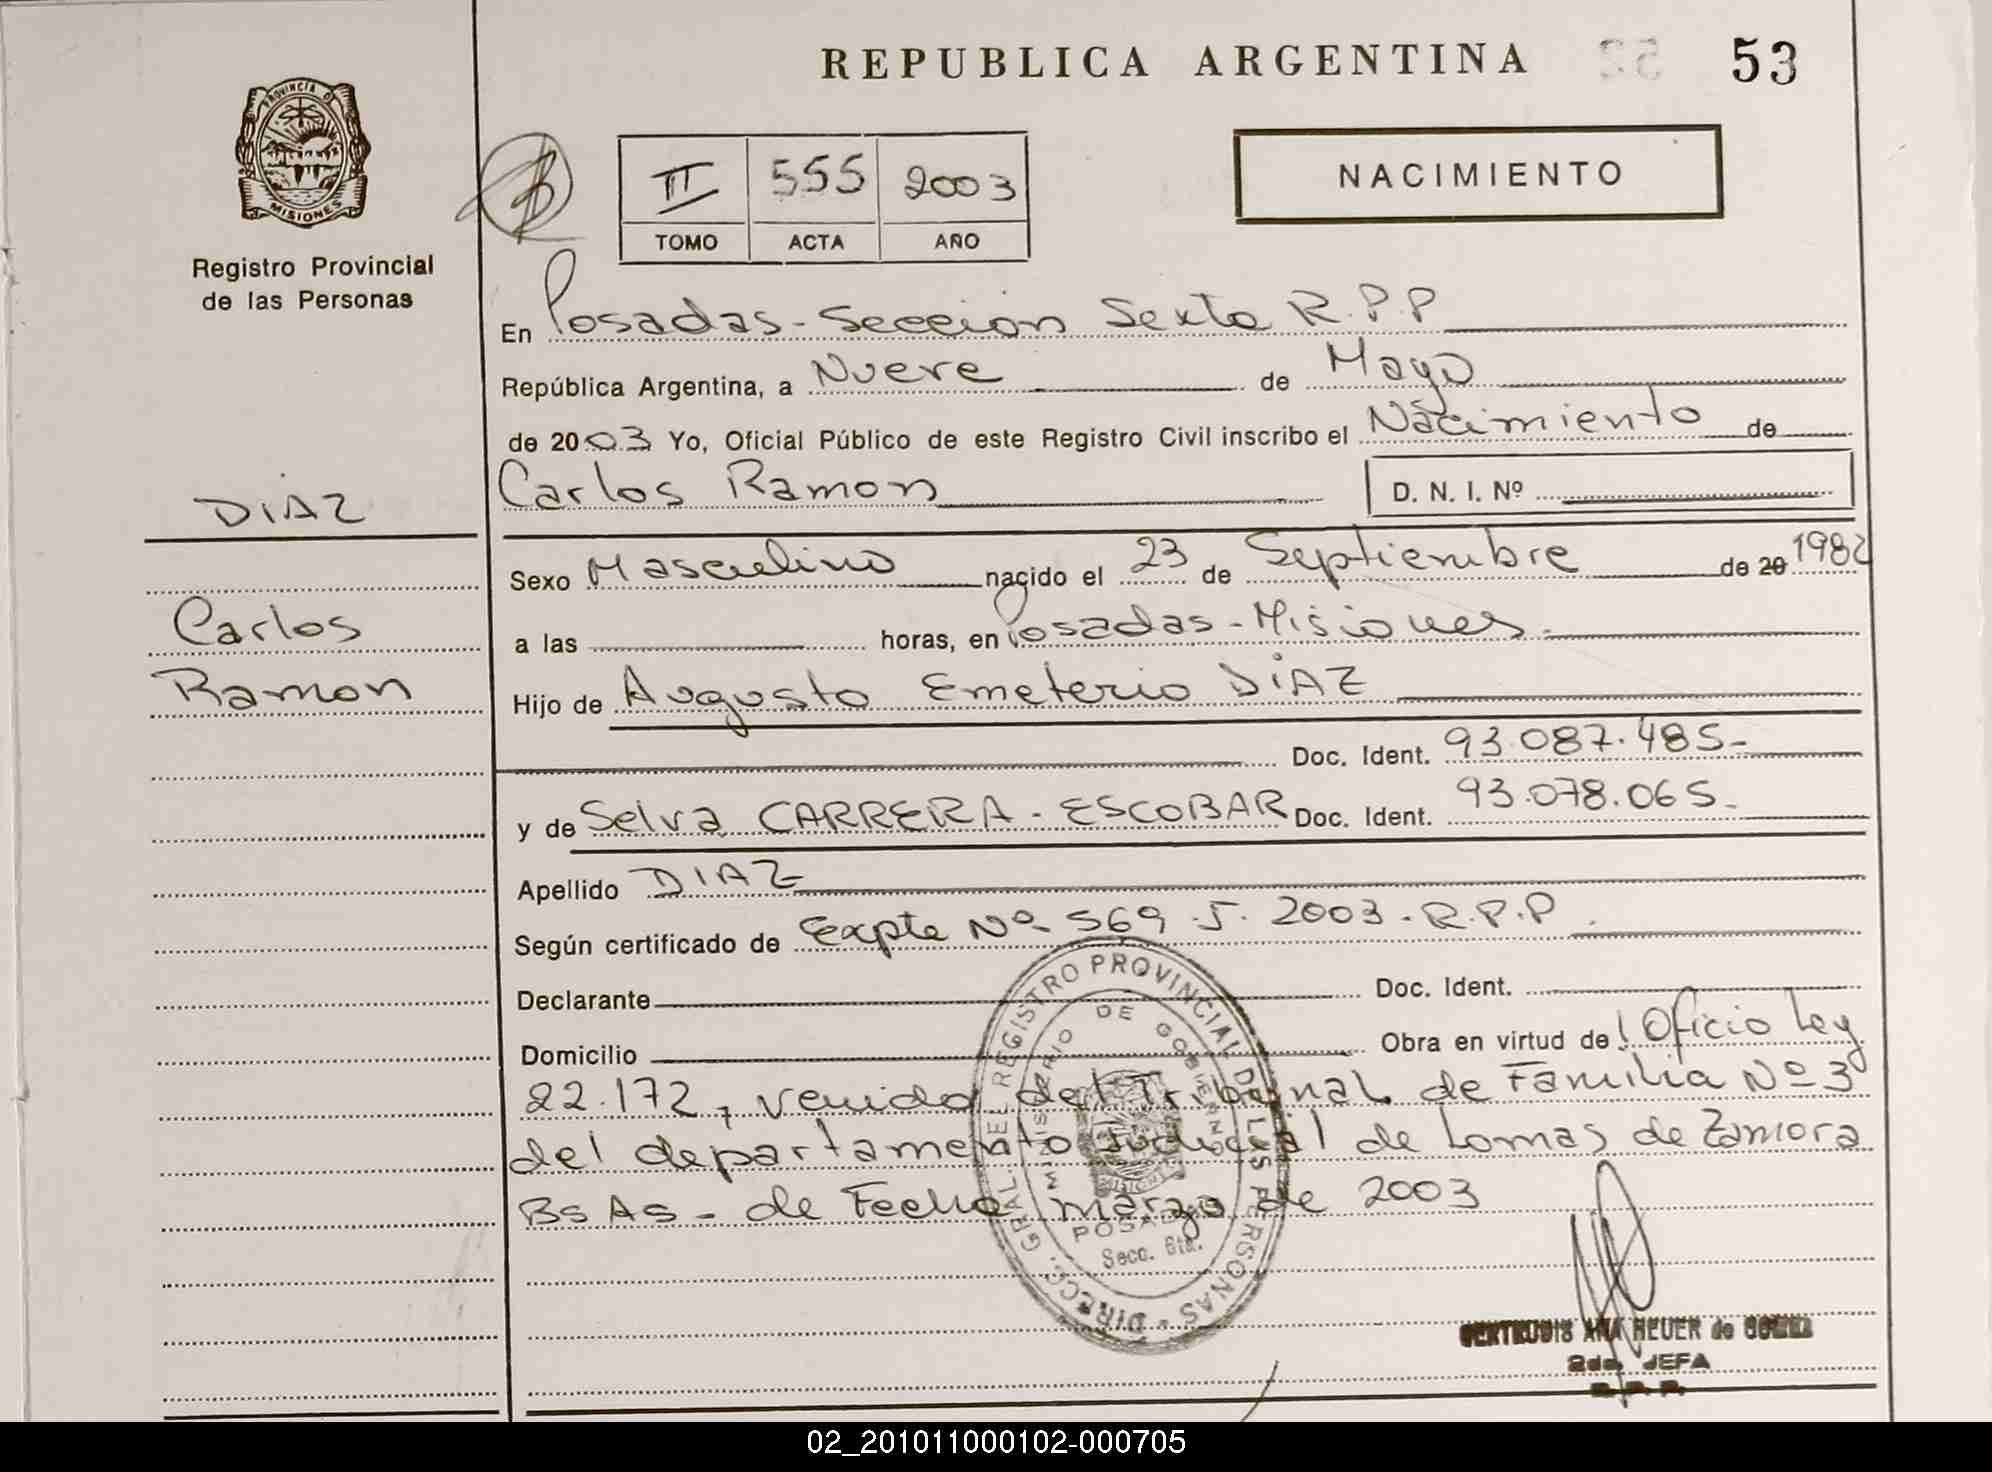 REPUBLICA ARGENTINA 53
PROVINCIA DE
MISIONES
Registro Provincial
de las Personas
II 555 2003
TOMO ACTA AÑO
NACIMIENTO
En Posadas - Seccion Sexta R.P.P
República Argentina, a Nueve de Mayo
de 2003 Yo, Oficial Público de este Registro Civil inscribo el Nacimiento de
Carlos Ramon D. N. I. Nº
DIAZ
Sexo Masculino nacido el 23 de Septiembre de 20 1982
Carlos
a las horas, en Posadas - Misiones.
Ramon
Hijo de Augusto Emeterio DiAZ
Doc. Ident. 93.087.485-
y de Selva CARRERA - ESCOBAR Doc. Ident. 93.078.065-
Apellido DIAZ
Según certificado de Expte Nº 569-J- 2003 - R.P.P.
Declarante Doc. Ident.
Domicilio Obra en virtud de Oficio Ley
22.172, venido del Tribunal de Familia Nº 3
del departamento Judicial de Lomas de Zamora
Bs As - de Fecha marzo de 2003
DIRECC. GRAL. DE REGISTRO PROVINCIAL DE LAS PERSONAS
MINISTERIO DE GOBIERNO
MISIONES
POSADAS
Secc. 6ta.
GERTRUDIS ANA HEUER de
2da. JEFA
R. P. P.
02_201011000102-000705